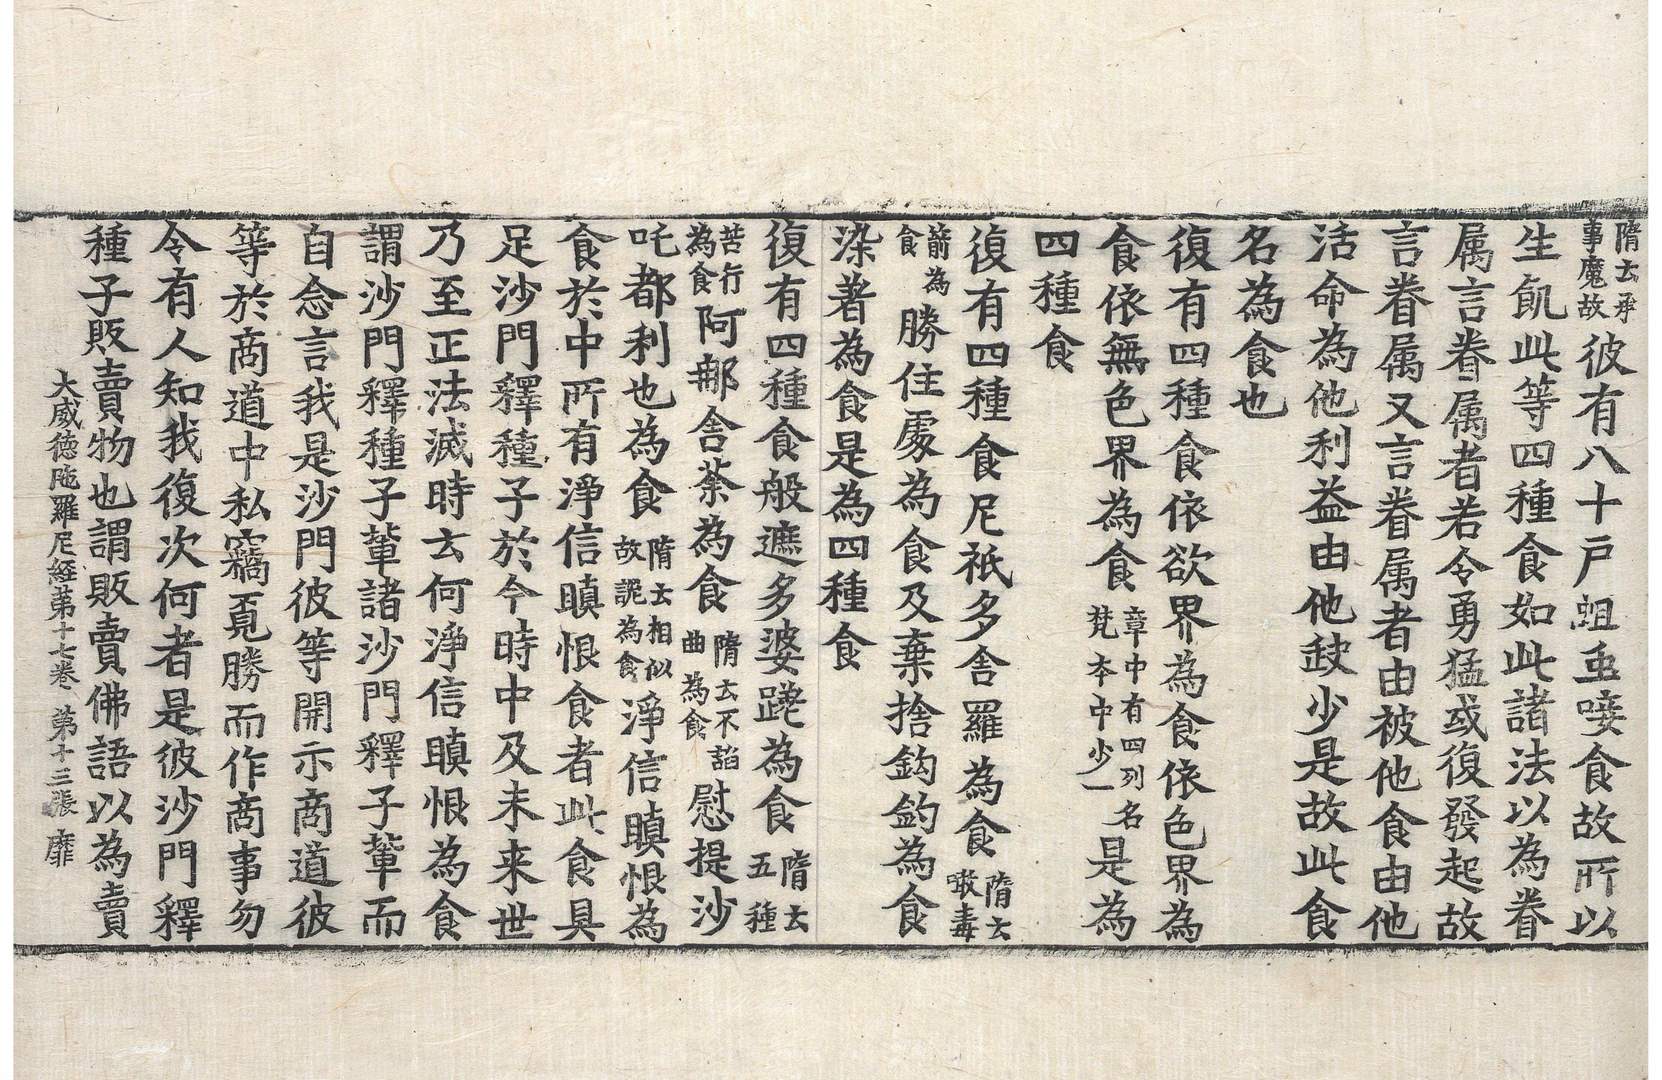 隋云承事魔故彼有八十戶蛆䖝唼食故所以
生飢此等四種食如此諸法以為眷
属言眷属者若令勇猛或復發起故
言眷属又言眷属者由被他食由他
活命為他利益由他㱙少是故此食
名為食也
復有四種食依欲界為食依色界為
食依無色界為食章中有四列名梵本中少一是為
四種食
復有四種食尼祇多舍羅為食隋云噉毒
箭為食勝住處為食及棄捨鈎釣為食
染著為食是為四種食
復有四種食般遮多婆蹉為食隋云五種
苦行為食阿那舍荼為食隋云不諂曲為食慰提沙
吒都利也為食隋云相似故諛為食淨信瞋恨為
食於中所有淨信瞋恨食者此食具
足沙門釋種子於今時中及未来世
乃至正法滅時云何淨信瞋恨為食
謂沙門釋種子輩諸沙門釋子輩而
自念言我是沙門彼等開示商道彼
等於商道中私竊覔勝而作商事勿
令有人知我復次何者是彼沙門釋
種子販賣物也謂販賣佛語以為賣
大威德陁羅尼経第十七卷 第十三張 靡